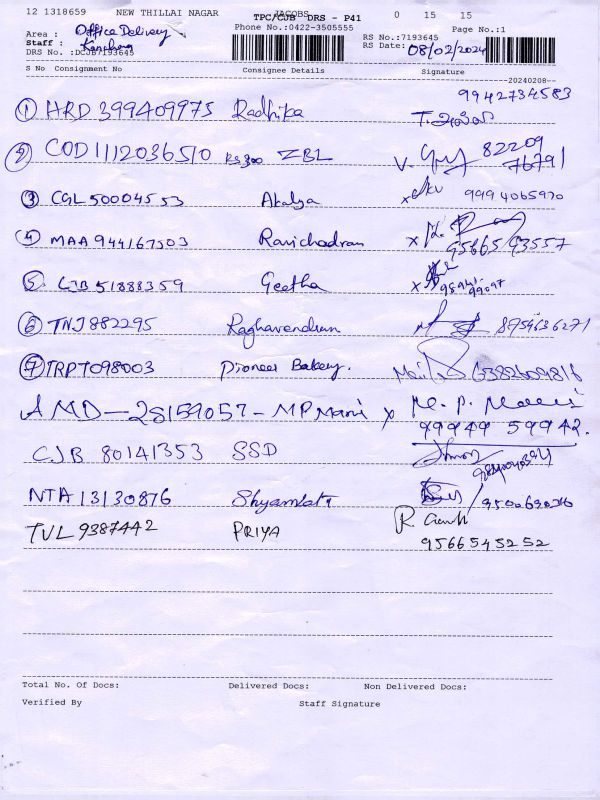 12 1318659 NEW THILLAI NAGAR JACOBS 0 15 15
TPC/CJB DRS - P41
Phone No.:0422-3505555 Page No.:1
Area : Office Delivery
Staff :
DRS No. :DCJB7193645
RS No.:7193645
RS Date: 08/02/2024
S No Consignment No Consignee Details Signature
20240208
① HRD 399409975 Radhika 9942734583
② COD 1112036510 RS 300 ZBL 82209 76791
③ CGL 50004553 Akalya 9994065970
④ MAA 944167503 Ravichadran x 95665 93557
⑤ CJB 51888359 Geetha x 98941-99097
⑥ TNJ 882295 Raghavendran 8754636271
⑦ TRPT098003 Pioneer Bakery.
AMD-28159057-MP Mani x M. P. Mani
99949 59942.
CJB 80141353 SSD
NTA 13130876 Shyamlata
TVL 9387442 PRIYA
9566545252
Total No. Of Docs: Delivered Docs: Non Delivered Docs:
Verified By Staff Signature